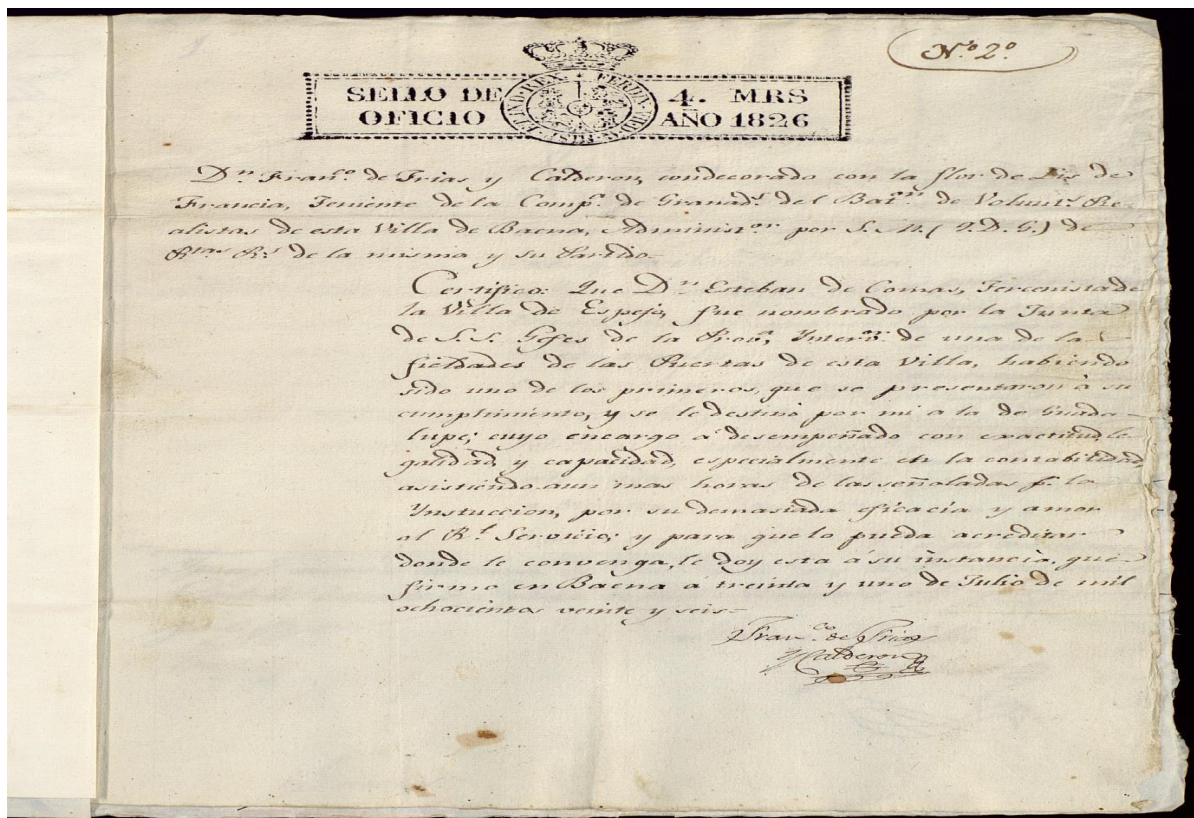 Nº 2º
SELLO DE OFICIO 4. MRS AÑO 1826
Dn. Franco. de Frias y Calderon, condecorado con la flor de Lis de
Francia, Teniente de la Compa. de Granads. del Baton. de Volunts. Re-
alistas de esta Villa de Baena, Administor. por S. M. (Q. D. G.) de
Rtas. Rs. de la misma y su Partido=
Certifico: Que Dn. Esteban de Comas, Tercenista de
la Villa de Espejo, fue nombrado por la Junta
de S.S. Gefes de la Prova. Interor. de una de la
fieldades de las Puertas de esta Villa, habiendo
sido uno de los primeros, que se presentaron à su
cumplimiento, y se le destinó por mi a la de Guada-
lupe; cuyo encargo á desempeñado con exactitud, le-
galidad, y capacidad, especialmente en la contabilidad,
asistiendo aun mas horas de las señaladas pr. la
Ynstuccion, por su demasiada eficacia y amor
al Rl. Servicio; y para que lo pueda acreditar
donde le convenga, le doy esta á su instancia, que
firmo en Baena á treinta y uno de Julio de mil
ochocientos veinte y seis=
Franco. de Frias
y Calderon